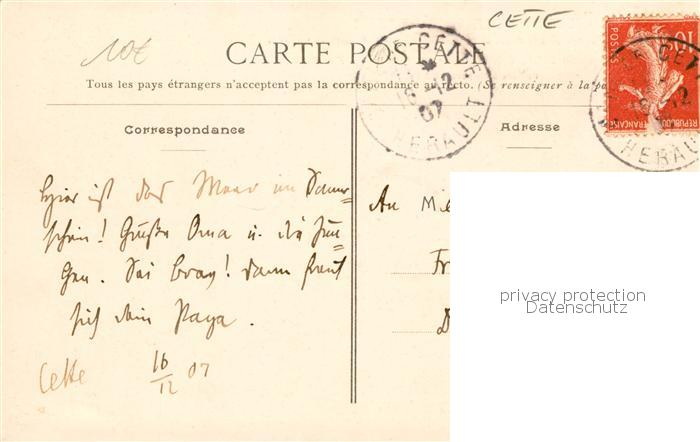 10€
CETTE
CARTE POSTALE
Tous les pays étrangers n'acceptent pas la correspondance au recto. (Se renseigner à la po
Correspondance
Adresse
CETTE
16-12
07
HERAULT
POSTES
10
REPUBLIQUE
FRANÇAISE
CETTE
HERAULT
Hier ist das Meer im Sonnen=
schein! Grüße Oma u. die Jun=
gen. Sei brav! Dann freut
sich dein Papa.
Cette 16/12 07
An M
Fr
D
privacy protection
Datenschutz